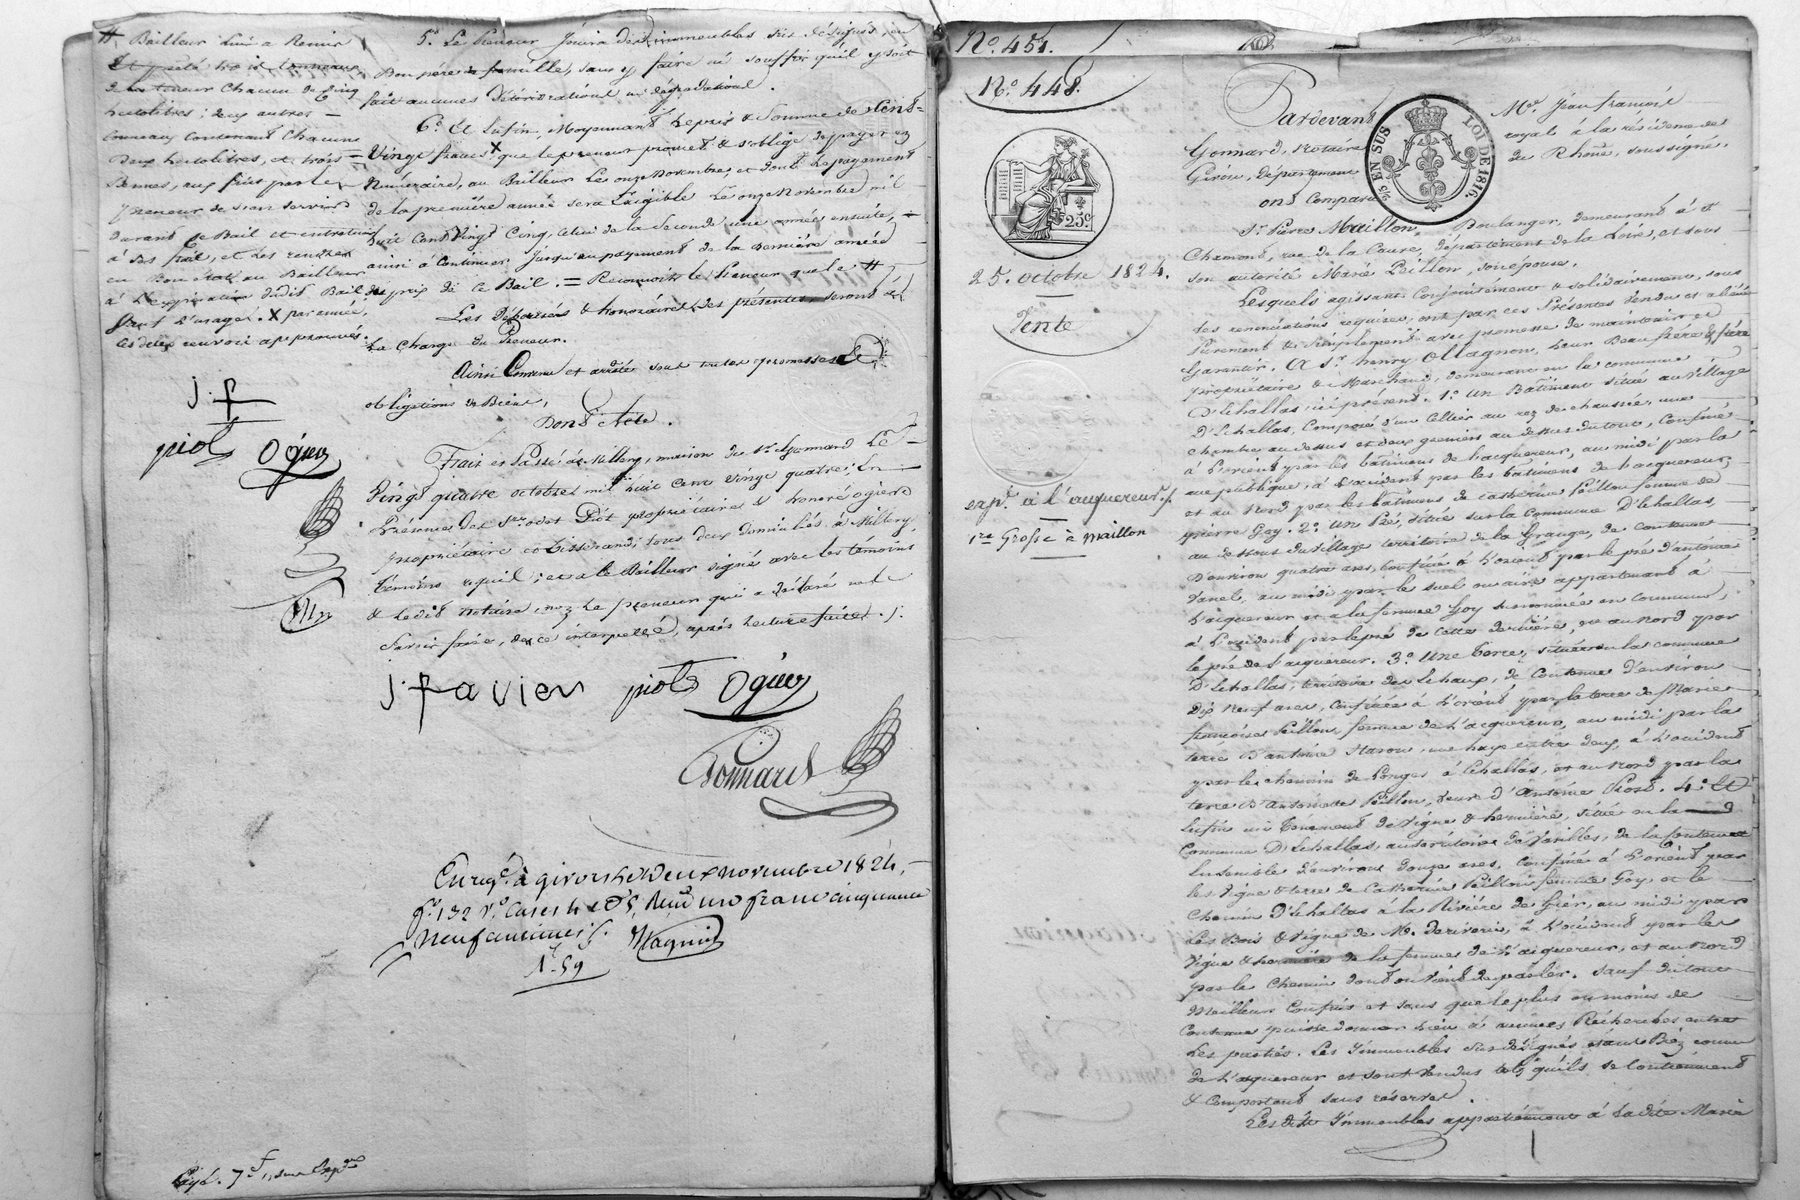 # Bailleur lui a Remis
de la teneur chacun de Cinq
hectolitres; deux autres =
tonneaux contenant chacun
deux hectolitres, et trois =
Bennes, aux frais par le
preneur de s'en servir
durant le Bail et entretenir
à ses frais, et les rendre
en Bon état au Bailleur
à l'expiration dudit Bail
sauf l'usage. X par année,
les deux renvois approuvés.
j. f
piot Ogier
5.° Le Preneur jouira des immeubles sus désignés, en
Bon père de famille, sans y faire ni souffrir qu'il y soit
fait aucunes détériorations ni dégradations.
6.° Et Enfin, Moyennant le prix & Somme de Cent-
Vingt francs X que le preneur promet & s'oblige de payer en
Numéraire, au Bailleur le onze Novembre et dont le payement
de la première année sera Exigible le onze Novembre mil
huit Cent Vingt Cinq, Celui de la Seconde une année ensuite,
ainsi à Continuer jusqu'au payement de la dernière année
du prix de ce Bail. = Reconnoit le Preneur que le #
Les Déboursés & honoraires des présentes seront à
La Charge du Preneur.
Ainsi Convenu et arrêté sous toutes promesses
obligations de Biens,
Dont Acte.
Fait et Passé à Millery, maison du Sr. Gonnard Le
Vingt quatre octobre mil huit Cent vingt quatre; En
Présence des Srs. odet Piot propriétaire & honoré ogier
propriétaire et Tisserand, tous deux domiciliés à Millery
témoins requis; et a le Bailleur signé avec les témoins
& ledit notaire, non le preneur qui a déclaré ne le
Savoir faire, de ce interpellé, après lecture faite. ./.
j. favier piot Ogier
Gonnard
Enreg.é à givors le Deux novembre 1824,
f.° 132 V.° Cases 4 et 5, Reçu un franc cinquante
Neuf centimes ./. Magnin
1.f 59
N.° 451.
N.° 448.
25.c
25. octobre 1824.
Vente
exp.n à l'acquereur ./.
1re Grosse à Maillon
2/5 EN SUS
LOI DE 1816.
Pardevant M.e Jean françois
Gonnard, Notaire royal à la résidence de
Givors, département du Rhône, soussigné,
ont Comparu
Sr. Pierre Maillon, Boulanger, demeurant à St
Chamond, rue de la Cause, département de la Loire, et sous
son autorité Marie Peillon, son épouse,
Lesquels agissant Conjointement & solidairement, sous
les renonciations requises, ont par ces Présentes Vendu et aliéné
Purement & simplement avec promesse de maintenir et
Garantir. A Sr. henry Ollagnon, leur Beau frère & frère
propriétaire & Marchand, demeurant en la commune
D'Echallas, ici présent. 1.° un Batiment situé au Village
D'Echallas, Composé d'un Cellier au rez de chaussée, une
Chambre au dessus et deux greniers au dessus du tout, Confiné
à l'orient par les batimens de l'acquereur, au midi par la
rue publique, à l'occident par les batimens de l'acquereur,
et au Nord par les batimens de Catherine Peillon femme de
pierre Goy. 2.° Un Pré, situé sur la Commune D'Echallas,
au dessous du Village territoire de la Grange, de contenue
D'environ quatre ares, Confiné à l'orient par le pré d'antoine
Vanel, au midi par le suel ou aire appartenant à
l'acquereur et a la femme Goy surnommée en commun,
à l'occident par le pré de cette dernière, et au Nord par
le pré de l'acquereur. 3.° Une terre, située en la commune
D'Echallas, territoire de Lehaux, de Contenue D'environ
Dix neuf ares, Confinée à l'orient par la terre de Marie
françoise Peillon femme de l'acquereur, au midi par la
terre D'antoine Maron, une haye entre deux, à l'occident
par le chemin de Longes à Echallas, et au Nord par la
terre D'antoinette Peillon, veuve d'Antoine Piost. 4.° Et
Enfin un Tènement de Vigne & hermière, situé en la
Commune D'Echallas, au territoire de Vanilles, de la Contenue
Ensemble d'environ Douze ares, Confiné à l'orient par
les Vigne & terre de Catherine Peillon femme Goy, et le
Chemin D'Echallas à la Rivière de Gier, au midi par
les Bois & Vigne de M. Deriverie, à l'occident par les
Vigne & hermière de la femme de l'acquereur, et au Nord
par le Chemin dont on Vient de parler. Sauf du tout
Meilleurs Confins et sans que le plus ou moins de
Contenue puisse donner lieu à aucunes Recherches entre
Les parties. Les Immeubles sus désignés étant Bien connus
de l'acquereur et sont Vendus tels qu'ils se Contiennent
& Comportent sans réserve.
Lesdits Immeubles appartiennent à ladite Marie